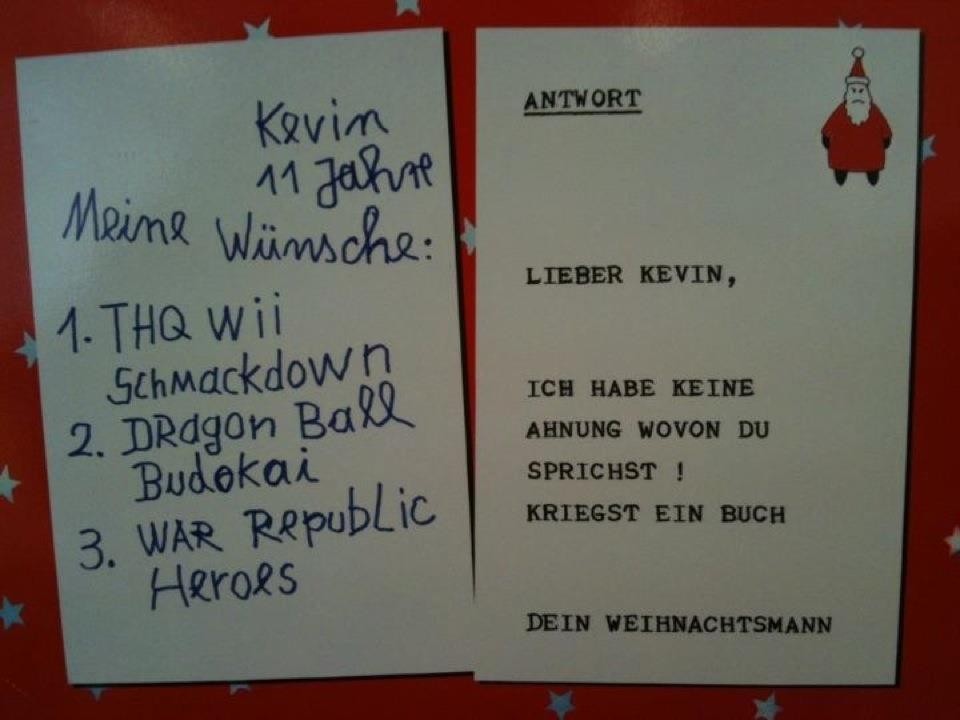 Kevin
11 Jahre
Meine Wünsche:
1. THQ Wii
Schmackdown
2. DRagon Ball
Budokai
3. WAR RepubLic
Heroes
ANTWORT
LIEBER KEVIN,
ICH HABE KEINE
AHNUNG WOVON DU
SPRICHST !
KRIEGST EIN BUCH
DEIN WEIHNACHTSMANN